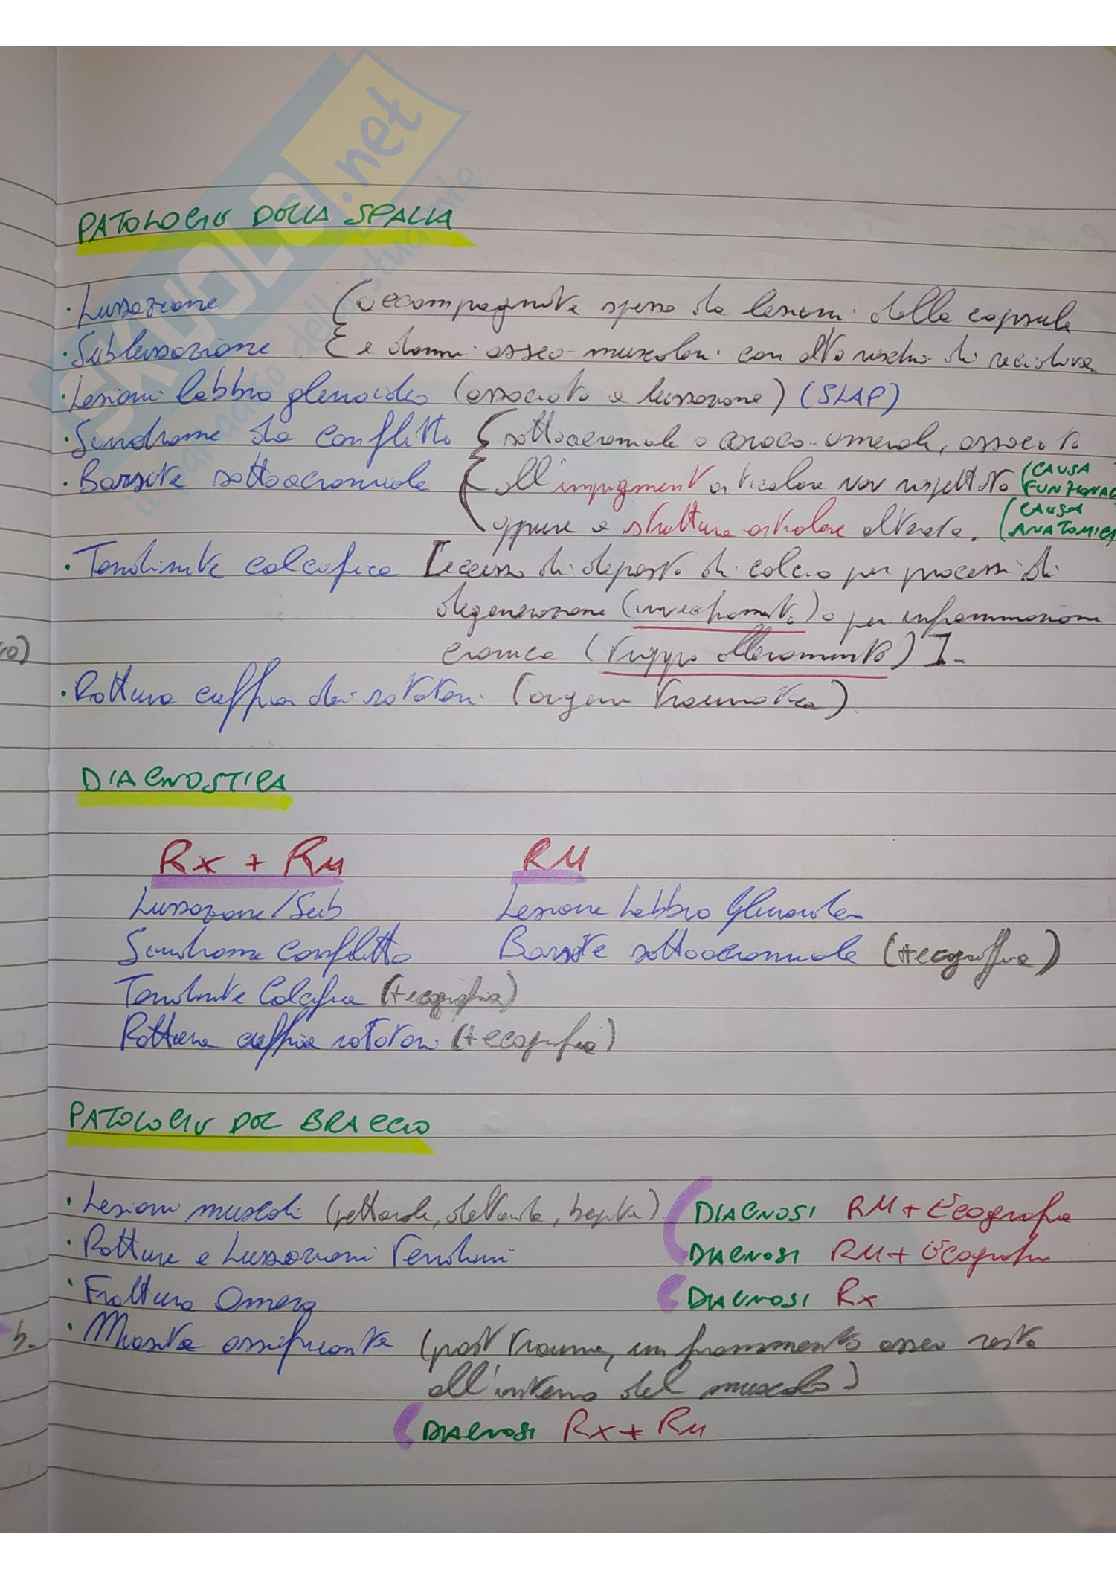 SKUOLA.net
PATOLOGIE DELLA SPALLA
· Lussazione (accompagnate spesso da lesioni della capsula
· Sublussazione e danni osseo-muscolari con alto rischio di recidiva
· Lesioni labbro glenoideo (associato a lussazione) (SLAP)
· Sindrome da conflitto { sottoacromiale o coraco-omerale, associato
· Borsite sottoacromiale all'impingment articolare non rispettato (CAUSA FUNZIONAL
oppure a struttura articolare alterata. (CAUSA ANATOMICA
· Tendinite calcifica [eccesso di deposito di calcio per processi di
degenerazione (invecchiamento) o per infiammazione
ro)
cronica (troppo allenamento)].
· Rottura cuffia dei rotatori (origine traumatica)
DIAGNOSTICA
Rx + RM RM
Lussazione/Sub Lesione Labbro Glenoideo
Sindrome conflitto Borsite sottoacromiale (+ecografia)
Tendinite Calcifica (+ecografia)
Rottura cuffia rotatori (+ecografia)
PATOLOGIE DEL BRACCIO
· Lesioni muscoli (pettorale, deltoide, bicipite) DIAGNOSI RM + Ecografia
· Rotture e Lussazioni Tendini DIAGNOSI RM + Ecografia
· Frattura Omero DIAGNOSI Rx
· Miosite ossificante (post trauma, un frammento osseo resta
all'interno del muscolo)
DIAGNOSI Rx + RM